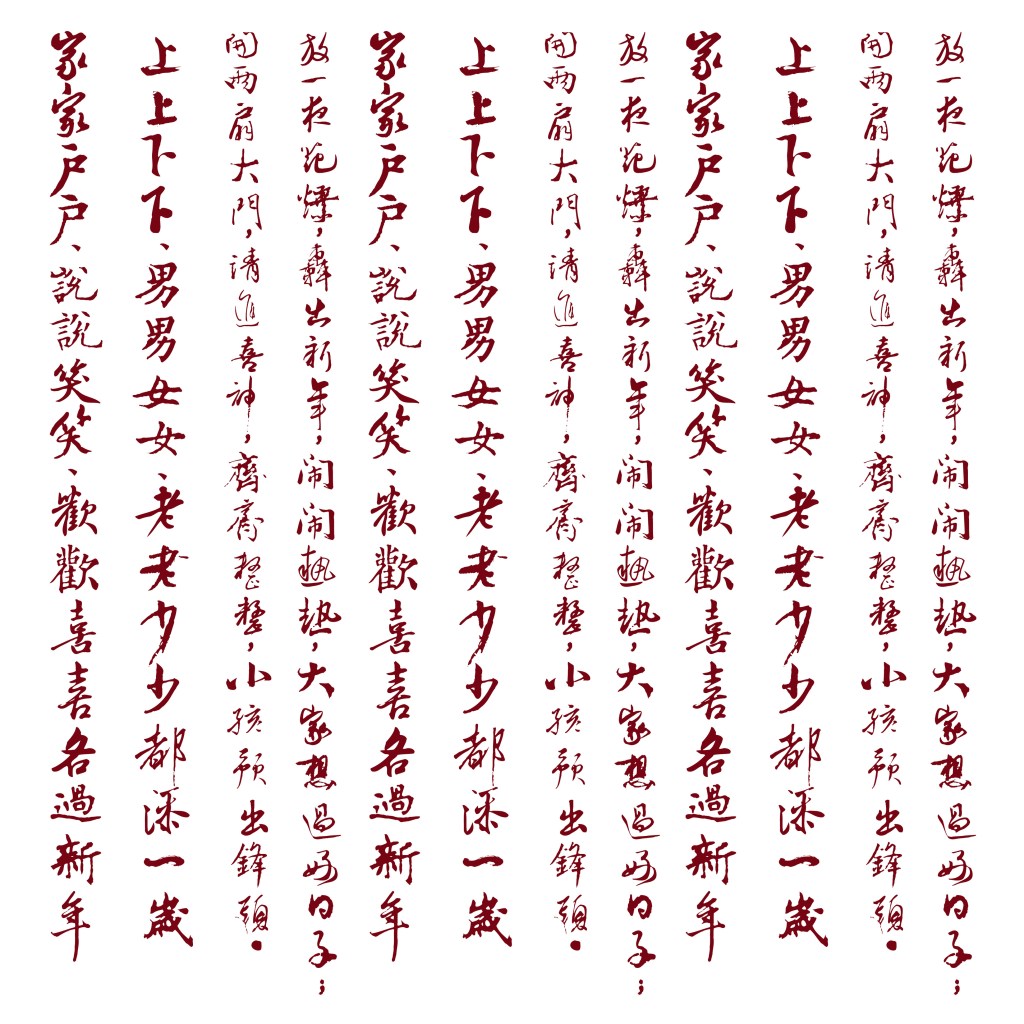 放一夜炮燦,轟出新年,闹闹熱热,大家想過好日子;
開两扇大門,請進喜神,齊齊整整,小孩預出鋒頭。
上上下下、男男女女、老老少少都添一歲
家家戶戶、說說笑笑、歡歡喜喜各過新年
放一夜炮燦,轟出新年,闹闹熱热,大家想過好日子;
開两扇大門,請進喜神,齊齊整整,小孩預出鋒頭。
上上下下、男男女女、老老少少都添一歲
家家戶戶、說說笑笑、歡歡喜喜各過新年
放一夜炮燦,轟出新年,闹闹熱热,大家想過好日子;
開两扇大門,請進喜神,齊齊整整,小孩預出鋒頭。
上上下下、男男女女、老老少少都添一歲
家家戶戶、說說笑笑、歡歡喜喜各過新年